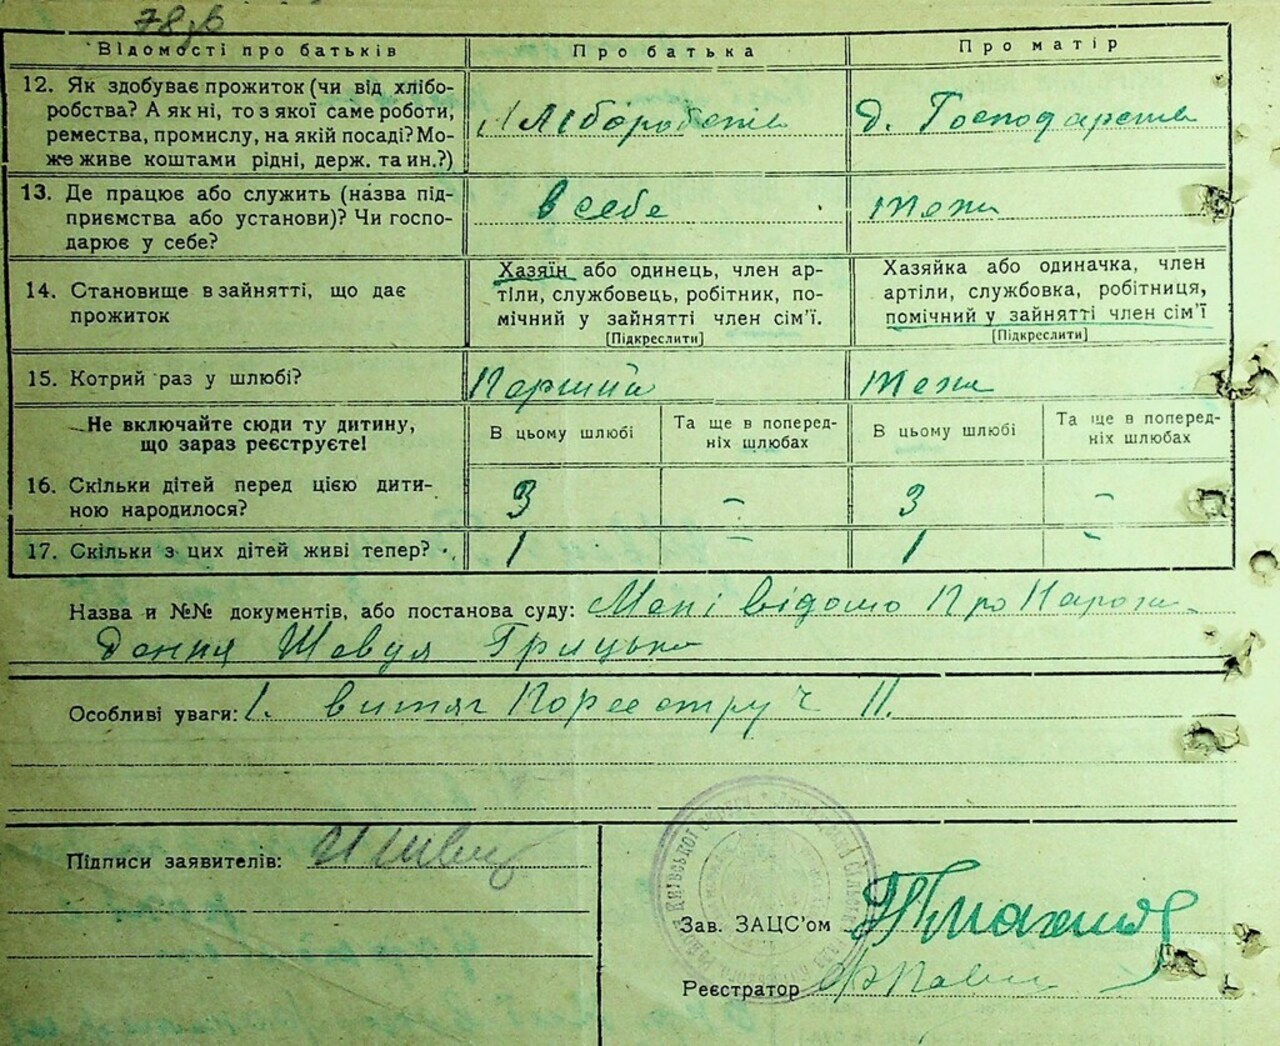 78зв
Відомості про батьків
Про батька
Про матір
12. Як здобуває прожиток (чи від хлібо-
робства? А як ні, то з якої саме роботи,
ремества, промислу, на якій посаді? Мо-
же живе коштами рідні, держ. та ин.?)
Хліборобств
д. Господарств
13. Де працює або служить (назва під-
приємства або установи)? Чи госпо-
дарює у себе?
в себе
теж
14. Становище в зайнятті, що дає
прожиток
Хазяїн або одинець, член ар-
тіли, службовець, робітник, по-
мічний у зайнятті член сім'ї.
[Підкреслити]
Хазяйка або одиначка, член
артіли, службовка, робітниця,
помічний у зайнятті член сім'ї
[Підкреслити]
15. Котрий раз у шлюбі?
Перший
теж
Не включайте сюди ту дитину,
що зараз реєструєте!
В цьому шлюбі
Та ще в поперед-
ніх шлюбах
В цьому шлюбі
Та ще в поперед-
ніх шлюбах
16. Скільки дітей перед цією дити-
ною народилося?
3 - 3 -
17. Скільки з цих дітей живі тепер?
1 - 1 -
Назва и №№ документів, або постанова суду: Мені відомо про нарож-
дення Шевця Грицька
Особливі уваги: 1. витяг по реєстру ч II.
Підписи заявителів:
Зав. ЗАЦС'ом
Реєстратор